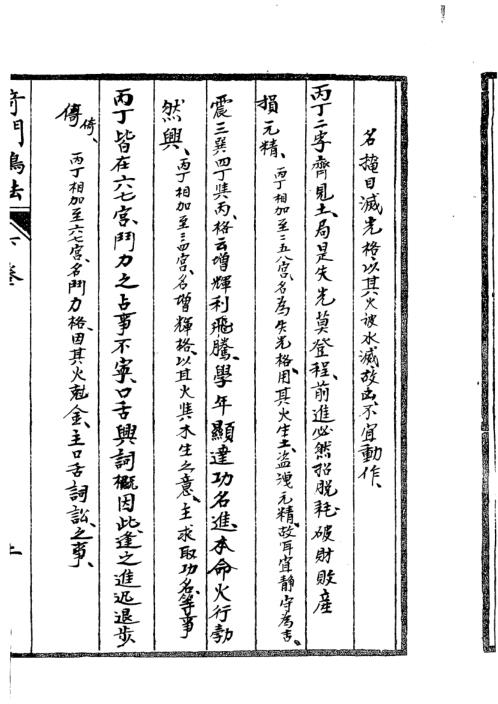 名掩目滅光格、以其火被水滅、故凶、不宜動作、
丙丁二字齊見土、局是失光莫登程、前進必然招脱耗、破財敗産
損元精、丙丁相加至二五八宮、名為失光格、用其火生土、盜洩元精、故耳宜靜守為吉、
震三巽四丁與丙、格云增輝利飛騰、學年顯達功名進、本命火行勃
然興、丙丁相加至三四宮、名增輝格、以其火與木生之意、主求取功名等事
丙丁皆在六七宮、鬥力之占事不寧、口舌興詞概因此、逢之進迟退步
俦俦、丙丁相加至六七宮、名鬥力格、因其火尅金、主口舌詞訟之事、
奇門鳴法 下卷